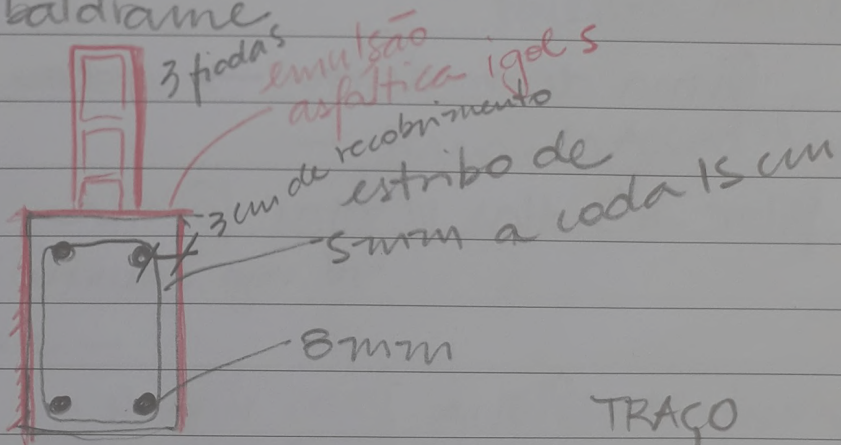 baldrame
3 fiadas
emulsão
asfáltica igol s
3 cm de recobrimento
estribo de
5mm a cada 15 cm
8mm
TRAÇO